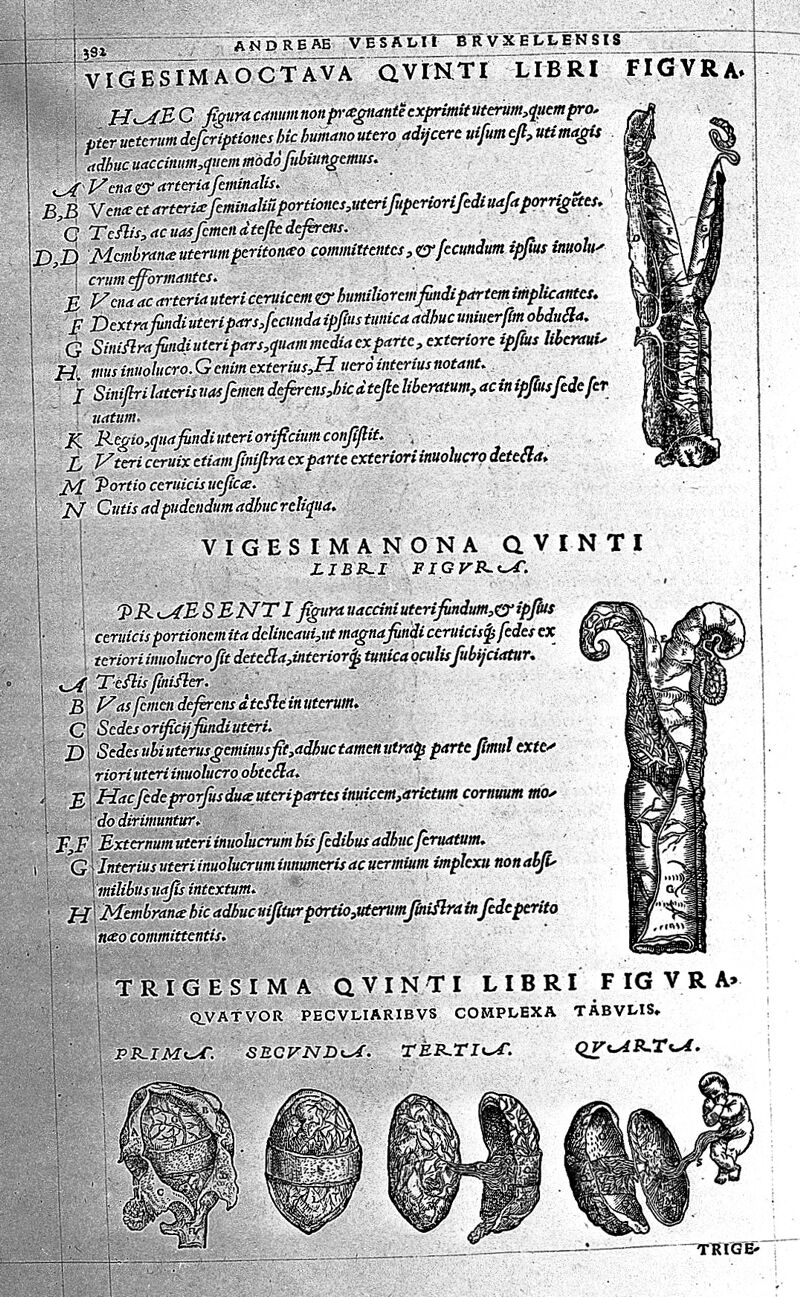 382
ANDREAE VESALII BRVXELLENSIS
VIGESIMAOCTAVA QVINTI LIBRI FIGVRA.
HAEC figura canum non prægnantẽ exprimit uterum, quem pro-
pter ueterum descriptiones hic humano utero adijcere uisum est, uti magis
adhuc uaccinum, quem modò subiungemus.
A Vena & arteria seminalis.
B,B Venæ et arteriæ seminaliũ portiones, uteri superiori sedi uasa porrigẽtes.
C Testis, ac uas semen à teste deferens.
D,D Membranæ uterum peritonæo committentes, & secundum ipsius inuolu-
crum efformantes.
E Vena ac arteria uteri ceruicem & humiliorem fundi partem implicantes.
F Dextra fundi uteri pars, secunda ipsius tunica adhuc uniuersim obducta.
G Sinistra fundi uteri pars, quam media ex parte, exteriore ipsius liberaui-
H. mus inuolucro. G enim exterius, H uerò interius notant.
I Sinistri lateris uas semen deferens, hic à teste liberatum, ac in ipsius sede ser
uatum.
K Regio, qua fundi uteri orificium consistit.
L Vteri ceruix etiam sinistra ex parte exteriori inuolucro detecta.
M Portio ceruicis uesicæ.
N Cutis ad pudendum adhuc reliqua.
VIGESIMANONA QVINTI
LIBRI FIGVRA.
PRAESENTI figura uaccini uteri fundum, & ipsius
ceruicis portionem ita delineaui, ut magna fundi ceruicisq́; sedes ex
teriori inuolucro sit detecta, interiorq́; tunica oculis subijciatur.
A Testis sinister.
B Vas semen deferens à teste in uterum.
C Sedes orificij fundi uteri.
D Sedes ubi uterus geminus fit, adhuc tamen utraq́; parte simul exte-
riori uteri inuolucro obtecta.
E Hac sede prorsus duæ uteri partes inuicem, arietum cornuum mo-
do dirimuntur.
F,F Externum uteri inuolucrum his sedibus adhuc seruatum.
G Interius uteri inuolucrum innumeris ac uermium implexu non absi-
milibus uasis intextum.
H Membranæ hic adhuc uisitur portio, uterum sinistra in sede perito
næo committentis.
TRIGESIMA QVINTI LIBRI FIGVRA,
QVATVOR PECVLIARIBVS COMPLEXA TABVLIS.
PRIMA. SECVNDA. TERTIA. QVARTA.
TRIGE-